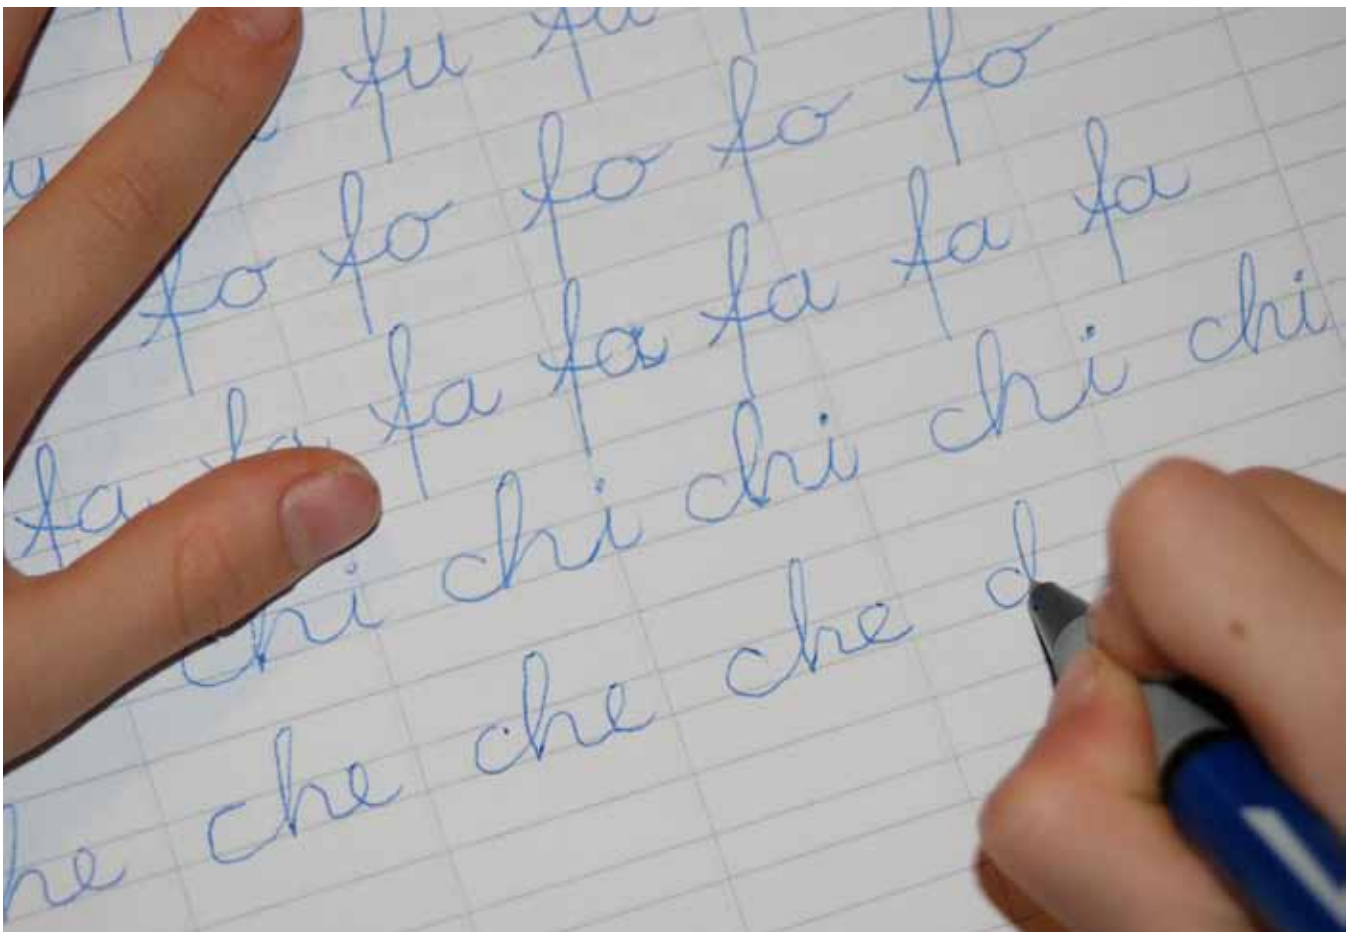 fu fu
fo fo fo fo fo
fa fa fa fa fa fa fa
chi chi chi chi chi
he che che che